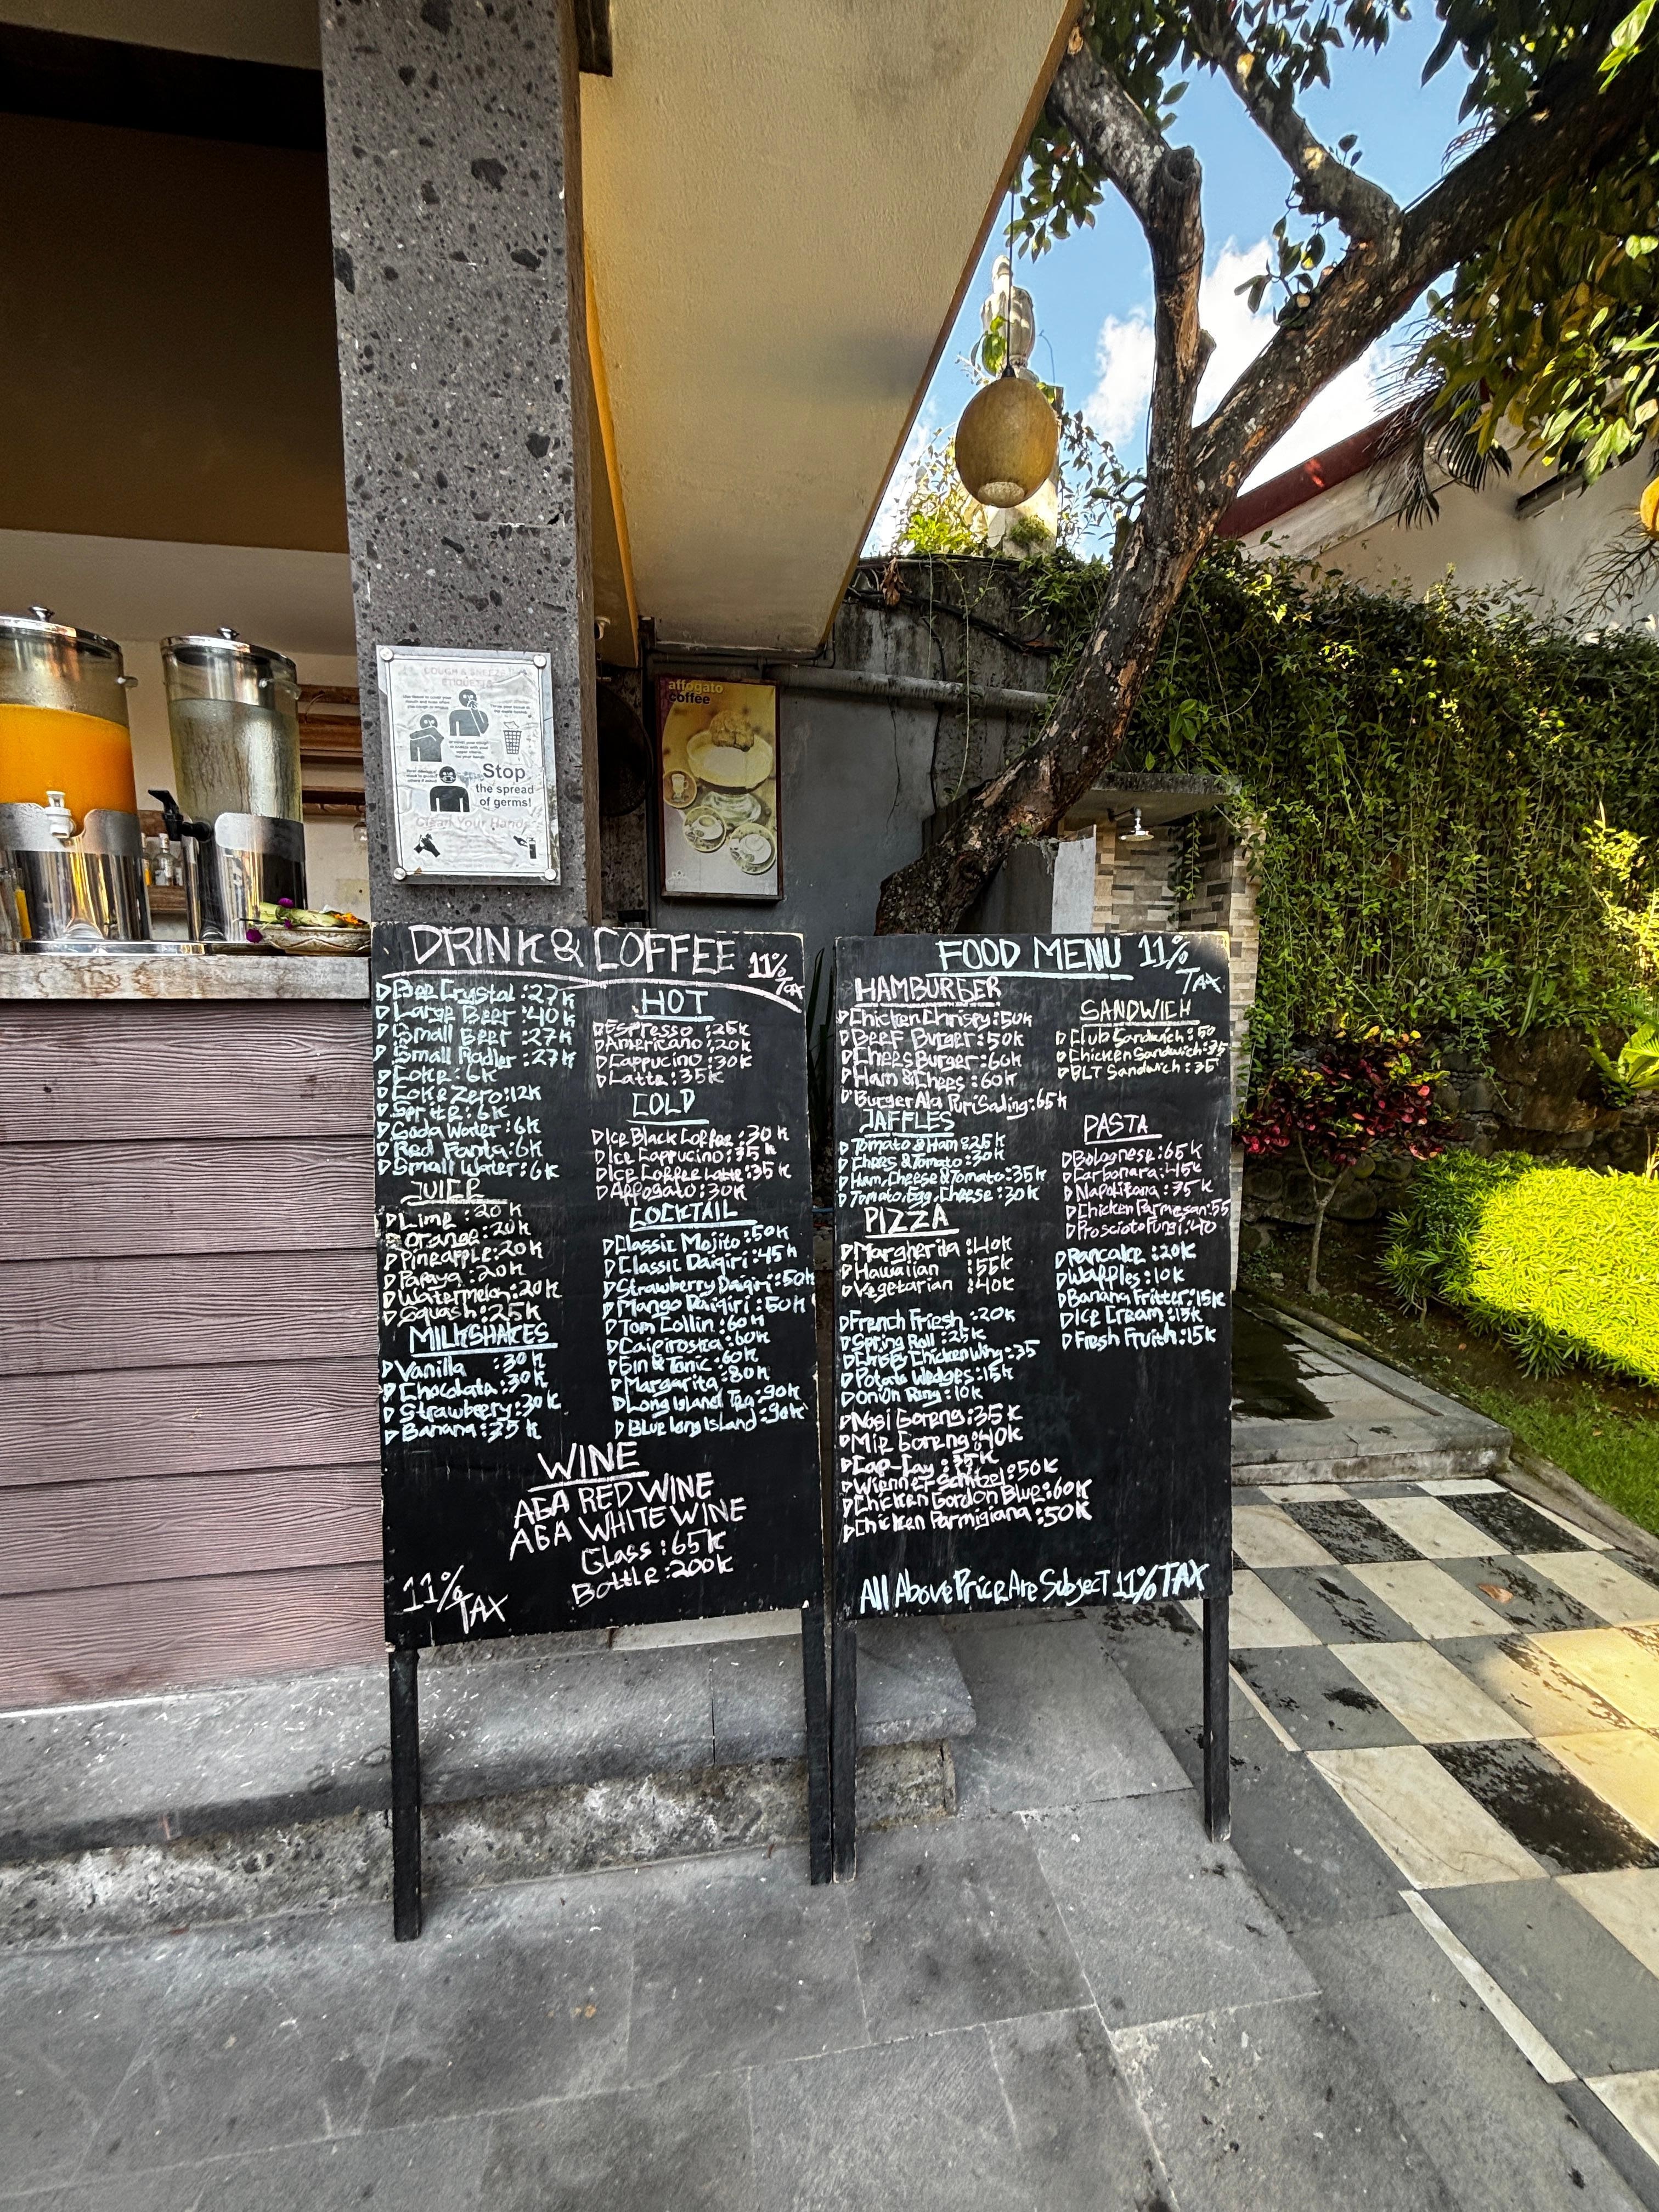 COUGH & SNEEZE
ETIQUETTE
Stop
the spread
of germs!
Clean Your Hands
affogato
coffee
DRINK & COFFEE 11% TAX
Beer Crystal : 27K
Large Beer : 40K
Small Beer : 27K
Small Radler : 27K
Coke : 6K
Coke Zero : 12K
Sprite : 6K
Soda Water : 6K
Red Fanta : 6K
Small Water : 6K
JUICE
Lime : 20K
Orange : 20K
Pineapple : 20K
Papaya : 20K
Watermelon : 20K
Squash : 25K
MILKSHAKES
Vanilla : 30K
Chocolata : 30K
Strawbeery : 30K
Banana : 35K
HOT
Espresso : 25K
Americano : 20K
Cappucino : 30K
Latte : 35K
COLD
Ice Black Coffee : 30K
Ice Cappucino : 35K
Ice Coffee Latte : 35K
Affogato : 30K
COCKTAIL
Classic Mojito : 50K
Classic Daigiri : 45K
Strawberry Daigiri : 50K
Mango Daigiri : 50K
Tom Collin : 60K
Caipiroska : 60K
Gin & Tonic : 60K
Margarita : 80K
Long Island Tea : 90K
Blue Long Island : 90K
WINE
AGA RED WINE
AGA WHITE WINE
Glass : 65K
Bottle : 200K
11% TAX
FOOD MENU 11% TAX
HAMBURGER
Chicken Chrispy : 50K
Beef Burger : 50K
Chees Burger : 60K
Ham & Chees : 60K
Burger Ala Puri Sading : 65K
JAFFLES
Tomato & Ham : 25K
Chees & Tomato : 30K
Ham, Cheese & Tomato : 35K
Tomato, Egg, Cheese : 30K
PIZZA
Margherita : 40K
Hawaiian : 55K
Vegetarian : 40K
French Friesh : 20K
Spring Roll : 25K
Chrispy Chicken Wing : 35
Potato Wedges : 15K
Onion Ring : 10K
Nasi Goreng : 35K
Mie Goreng : 40K
Cap-Cay : 35K
Wienner Schitzel : 50K
Chicken Gordon Blue : 60K
Chicken Parmigiana : 50K
SANDWICH
Club Sandwich : 50
Chicken Sandwich : 35
BLT Sandwich : 35
PASTA
Bolognese : 65K
Carbonara : 45K
Napolitana : 35K
Chicken Parmesan : 55
Prosciato Fungi : 40
Pancake : 20K
Waffles : 10K
Banana Fritter : 15K
Ice Cream : 15K
Fresh Fruith : 15K
All Above Price Are Subject 11% TAX